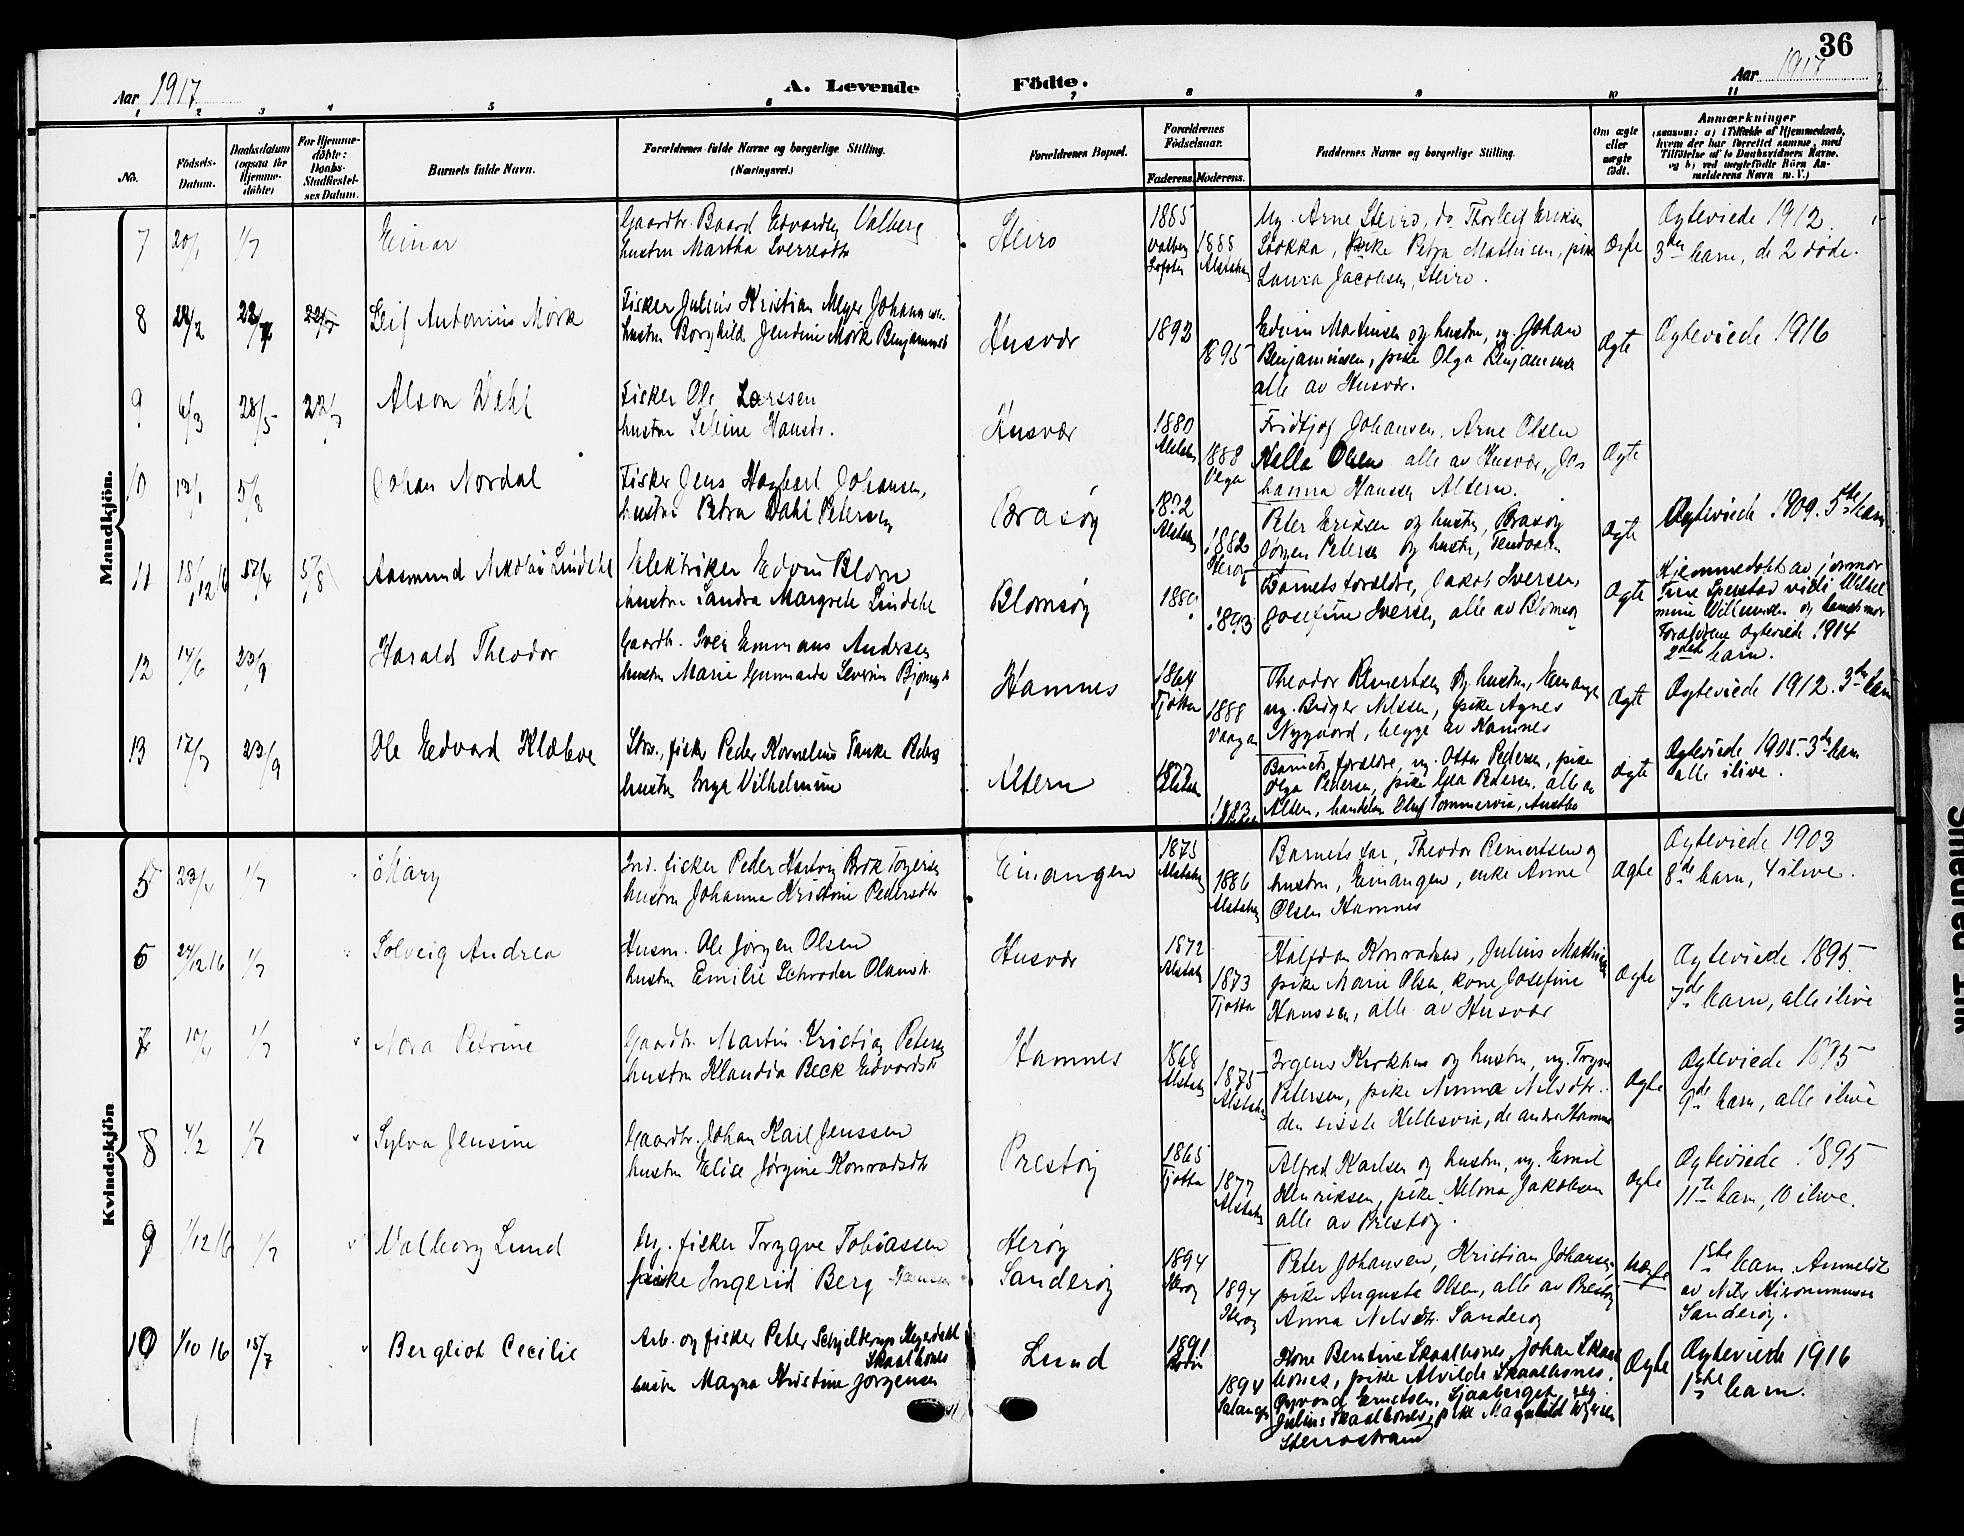 36
Aar 1917
A. Levende Födte.
Aar 1917
1 2 3 4 5 6 7 8 9 10 11
No.
Födsels-Datum.
Daabsdatum (ogsaa for Hjemme-döbte)
For Hjemme-döbte: Daabs-Stadfæstel-ses Datum.
Barnets fulde Navn.
Forældrenes fulde Navne og borgerlige Stilling. (Næringsvei.)
Forældrenes Bopæl.
Forældrenes Födselsaar.
Faderens. Moderens.
Faddernes Navne og borgerlige Stilling.
Om ægte eller uægte födt.
Anmærkninger
(saasom: a) i Tilfælde af Hjemmedaab,
hvem der har forrettet samme, med
Tilföielse af to Daabsvidners Navne.
og b) ved uægtefödte Börn An-
melderens Navn m. V.)
Mandkjön.
7 20/1 1/7 Einar
Gaardbr. Baard Edvardsen Valberg
hustru Martha Sverresdtr
Steiro
1885 Valberg Lofoten
1885 Alstahg
Ug. Arne Steiro, do Thorleif Eriksen
Stokka, pike Petra Mathisen, pike
Laura Jacobsen, Steiro.
Ægte
Egteviede 1912.
3die barn, de 2 døde.
8 22/7 Leif Antonius Mörk
Fisker Julius Kristian Meyer Johannessen
hustru Borghild Jendine Mörk Benjaminsdtr
Husvær
1893
1895
Edvin Martinsen og hustru, ug. Johan
Benjaminsen, pike Olga Benjaminsen
alle av Husvær.
Ægte
Egteviede 1916
9 6/3 28/5 22/7 Alson Dahl
Fisker Ole Larssen
hustru Seline Hansdr.
Husvær
1880 Alstah.
1888 Vega
Fridtjof Johansen, Arne Olsen
Kalla Olsen alle av Husvær, Jo-
hanna Hanssen Altern.
Ægte
10 5/8 Johan Nordal
Fisker Jens Hagbart Johansen,
hustru Petra Dahl Petersen
Brasøy
Alstah.
1882 Herøy
Peter Eriksen og hustru, Brasøy
Jørgen Petersen og hustru, Tendvalen
Ægte
Egteviede 1909. 5te barn
11 18/12 16 5/8 Aasmund Nikolai Lindahl
Elektriker Edvin Blom
hustru Sandra Margrete Lindahl
Blomsøy
1893
Barnets foreldre, Jakob Iversen,
Josefine Iversen, alle av Blomsøy
Ægte
Hjemmedøbt av jormor
Trine Sperstad vidn. Vilhel
mine Willumsen og barnets mor
Foreldrene Egteviede 1914
2det barn.
12 14/6 23/9 Harald Theodor
Gaardbr. Iver Emmaus Andersen
hustru Marie Gunnarda Severine Bjørnes
Hamnes
1864 Tjøtta
1888 Vaagan
Theodor Reinertsen og hustru, Einangen
ug. Birger Nilssen, pike Agnes
Nygaard, begge av Hamnes
Ægte
Egteviede 1912. 3die barn
13 17/7 23/9 Ole Edvard Klæboe
Strs., fisker Peder Kornelius Tanke Peders
hustru Inga Vilhelmine
Altern
1877 Alstah.
1883
Barnets foreldre, ug. Ottar Pedersen, pike
Olga Pedersen, pike Lea Pedersen, alle av
Altern, handelsm Oluf Pommervig, Austbø
Ægte
Egteviede 1905. 3die barn
alle ilive.
Kvindekjön
5 23/1 1/7 Mary
Ind. fisker Peder Hartvig Brok Torgersen
hustru Johanna Kristine Pedersdtr
Einangen
1875 Alstahg
1886 Alstahg
Barnets far, Theodor Reinertsen og
hustru, Einangen, enke Anne
Olsen Hamnes
Ægte
Egteviede 1903
8de barn, 4 ilive.
6 24/12 16 1/7 Solveig Andrea
Husm. Ole Jørgen Olsen
hustru Emilie Schrøder Olausdtr.
Husvær
1872 Alstahg
1873 Tjøtta
Halfdan Konradsen, Julius Mathisen
pike Marie Olsen, kone Josefine
Hanssen, alle av Husvær
Ægte
Egteviede 1895.
7de barn, alle ilive
7 10/1 1/7 Nora Petrine
Gaardbr. Martin Kristian Petersen
hustru Klaudia Beck Edvardsdtr
Hamnes
1868 Alstahg
1875 Alstahg
Jrgens Kirkhus og hustru, ug. Trygve
Petersen, pike Nimma Nilsdtr.
den sisste Hellesvik, de andre Hamnes
Ægte
Egteviede 1895
9de barn, alle ilive
8 4/2 1/7 Sylva Jensine
Gaardbr. Johan Karl Jenssen
hustru Elise Jørgine Konradsdtr
Prestøy
1865 Tjøtta
1877 Alstahg
Alfred Karlsen og hustru, ug. Emil
Henriksen, pike Helma Jakobsen
alle av Prestøy.
Ægte
Egteviede 1895
11te barn, 10 ilive.
9 1/12 16 1/7 Valborg Lund
Ug. fisker Trygve Tobiassen
pike Ingerid Berg
Herøy
Sanderøy
1894 Herøy
1894 Herøy
Peter Johansen, Kristian Johansen,
pike Augusta Olsen, alle av Prestøy
Anna Nilsdtr. Sanderøy
Uægte
1ste barn. Anmeldt
av Nils Hieronimussen
Sanderøy.
10 1/10 16 15/7 Bergliot Cecilie
Arb. og fisker Peter Schjelderup Meyerdahl
Skaalbones
hustru Magna Kristine Jørgensen
Lund
1891 Bodin
1894 Salangen
Kone Bentine Skaalbones, Johan Skaal
bones, pike Alvilde Skaalbones.
Øyvond Ernstsen, Sjaaberget, ug.
Julius Skaalbones, pike Magnhild
Steirostrand
Ægte
Egteviede 1916
1ste barn.